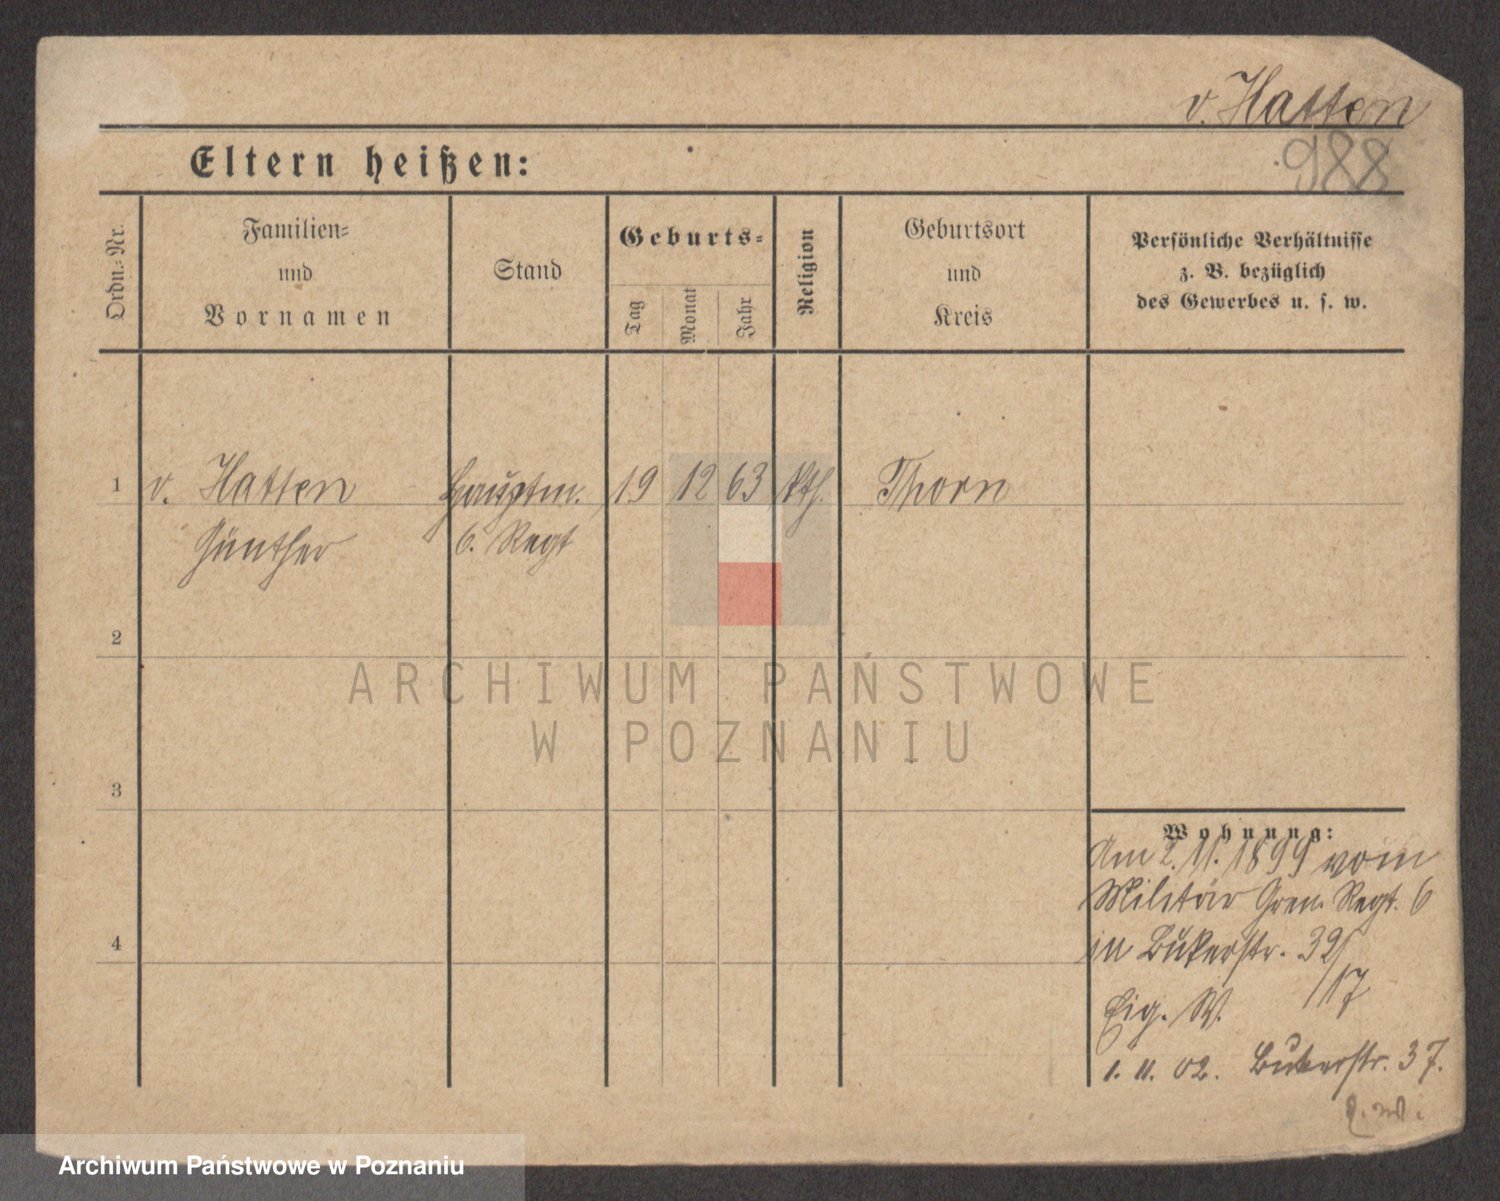 v. Hatten
988
Eltern heißen:
Ordn.-Nr.
Familien-
und
Vornamen
Stand
Geburts-
Tag
Monat
Jahr
Religion
Geburtsort
und
Kreis
Persönliche Verhältnisse
z. B. bezüglich
des Gewerbes u. s. w.
1 v. Hatten Hauptm. 19 12 63 kth. Thorn
Günther 6. Regt
2
3
4
Wohnung:
Am 2. 11. 1899 vom
Militär Gren. Regt. 6
in Bukerstr. 39/
17
Eig. W.
1. 11. 02. Bukerstr. 37.
ARCHIWUM PAŃSTWOWE
W POZNANIU
Archiwum Państwowe w Poznaniu